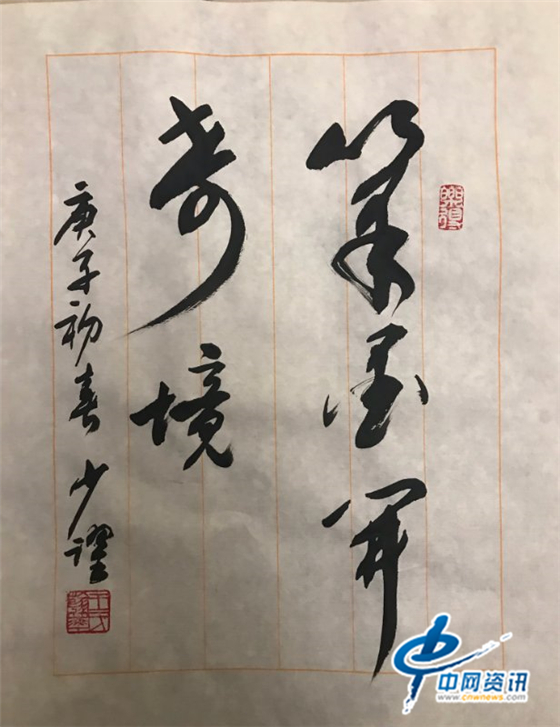 筆墨開
奇境
庚子初春 少
中网资讯
www.cnwnews.com